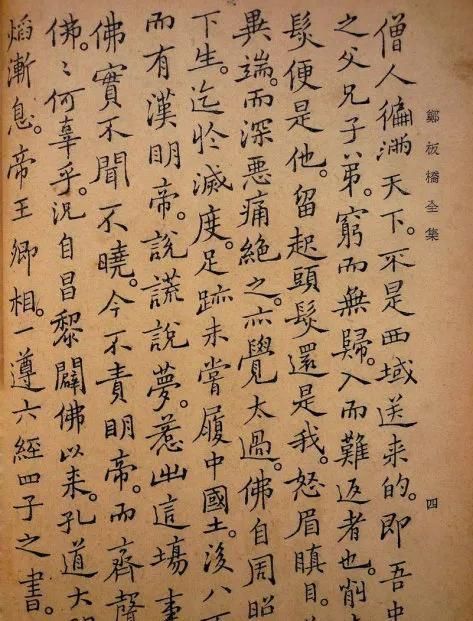 鄭板橋全集
四
僧人徧滿天下。不是西域送来的。即吾中
之父兄子弟。窮而無歸。入而難返者也。削
髮便是他。留起頭髮還是我。怒眉瞋目。
異端。而深惡痛絶之。亦覺太過。佛自周昭
下生。迄於滅度。足跡未嘗履中國土。後八
而有漢眀帝。說謊說夢。惹出這場事
佛實不聞不曉。今不責眀帝。而齊聲
佛。〻何辜乎。况自昌黎闢佛以来。孔道大
焰漸息。帝王卿相。一遵六經四子之書。